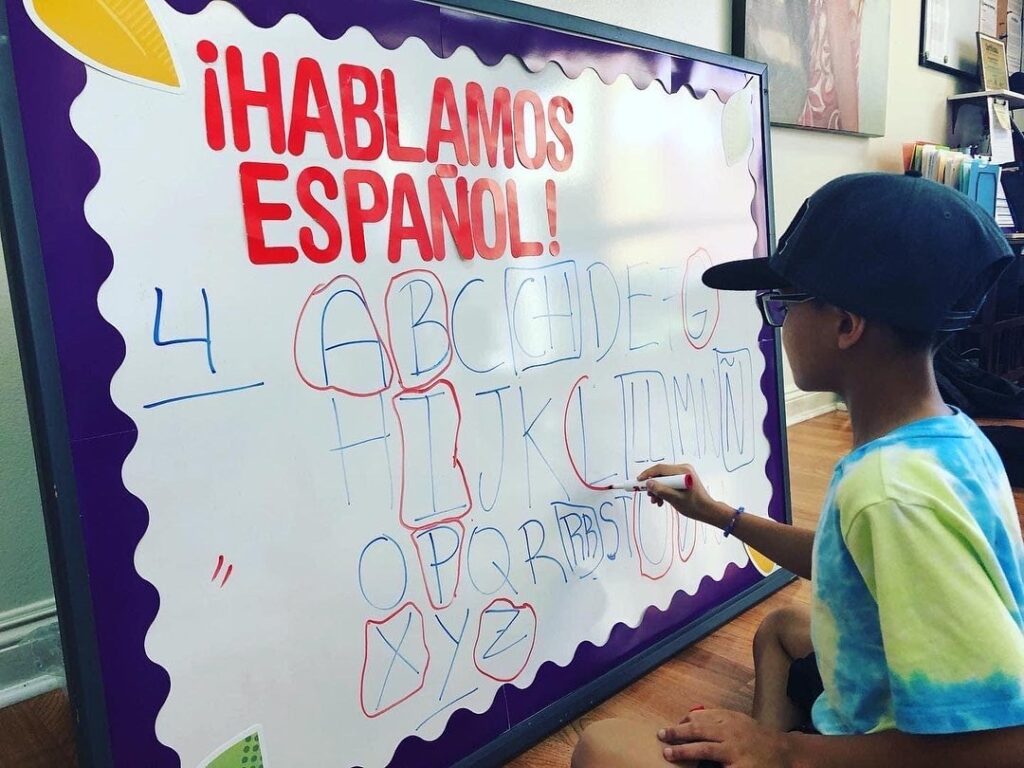 ¡HABLAMOS
ESPAÑOL!
4
A B C CH D E F G
H I J K L LL M N Ñ
O P Q R RR S T U V
X Y Z